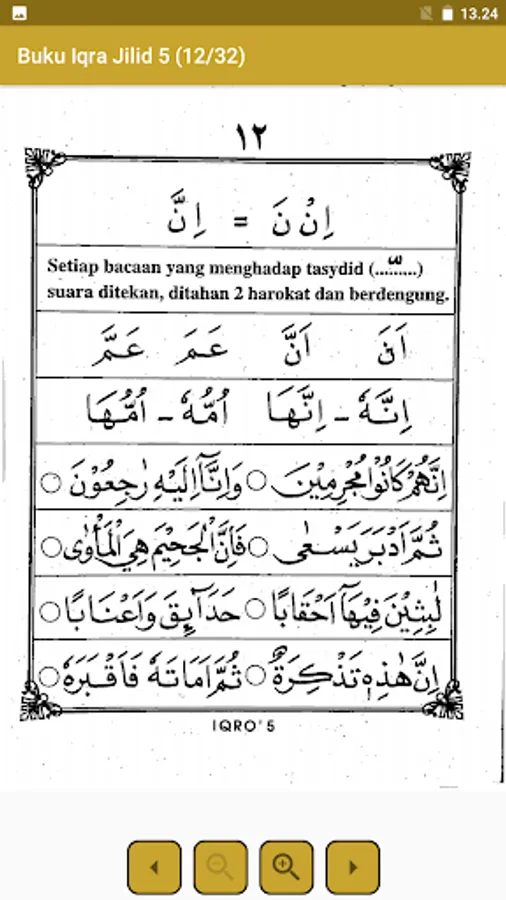 13.24
Buku Iqra Jilid 5 (12/32)
١٢
اِنْ نَ = اِنَّ
Setiap bacaan yang menghadap tasydid (....ّ.....)
suara ditekan, ditahan 2 harokat dan berdengung.
اَنَ اَنَّ عَمَ عَمَّ
اِنَّهٗ - اِنَّهَا اُمُّهٗ - اُمُّهَا
اِنَّهُمْ كَانُوْا مُجْرِمِيْنَ ○ وَاِنَّآ اِلَيْهِ رٰجِعُوْنَ ○
ثُمَّ اَدْبَرَ يَسْعٰى ○ فَاِنَّ الْجَحِيْمَ هِيَ الْمَأْوٰى ○
لٰبِثِيْنَ فِيْهَآ اَحْقَابًا ○ حَدَآئِقَ وَاَعْنَابًا ○
اِنَّ هٰذِهٖ تَذْكِرَةٌ ○ ثُمَّ اَمَاتَهٗ فَاَقْبَرَهٗ ○
IQRO' 5